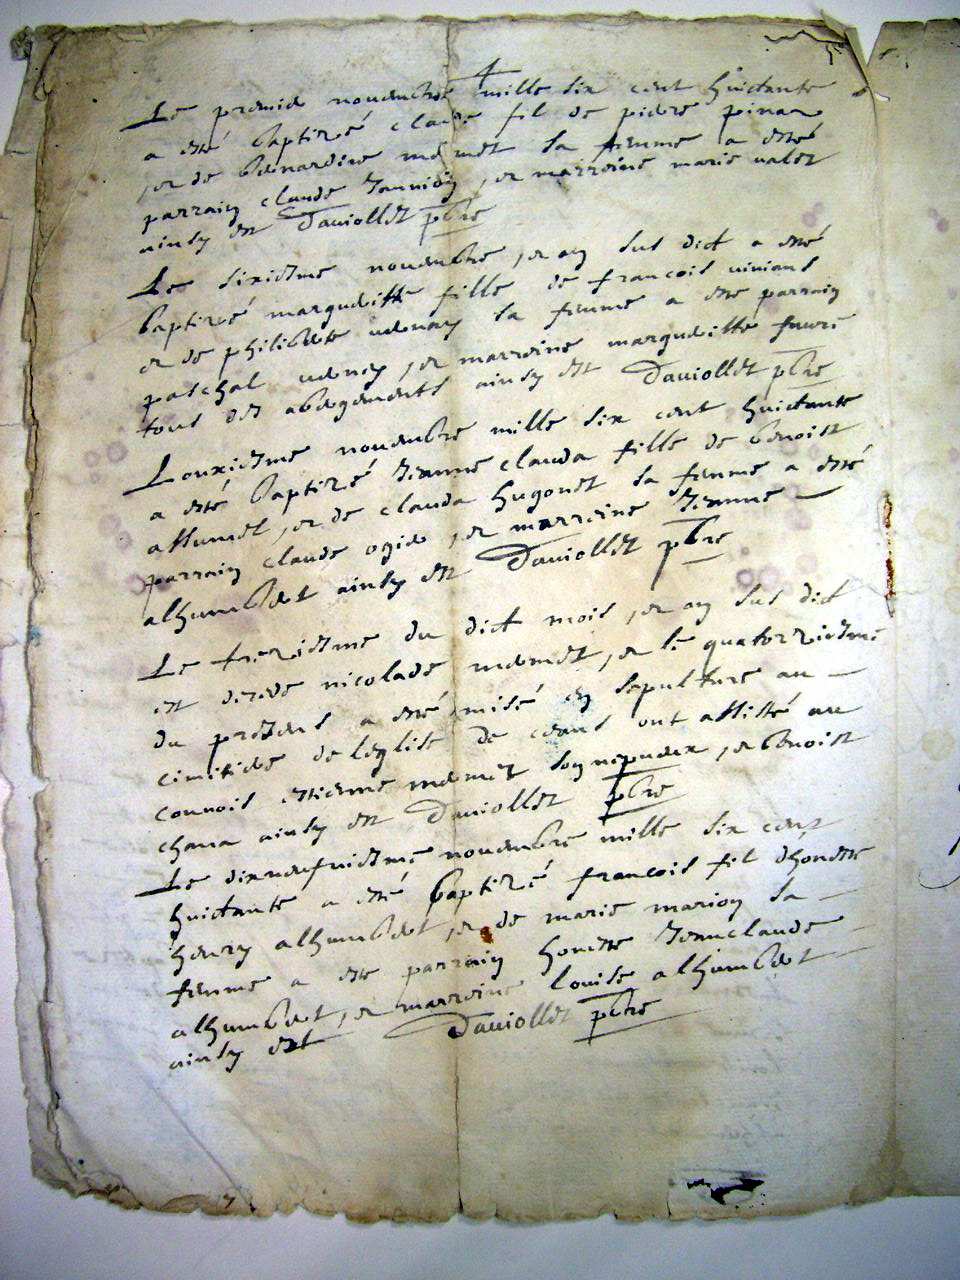 Le premier novembre mille six cent huictante
a esté baptizé claude fil de pierre pinar
et de bernardine mermet sa femme a esté
parrain claude et marreine marie valet
ainsy est Daviollet pbre
Le sixiesme novembre et an sus dict a esté
baptizé margueritte fille de francois viviand
et de philiberte sa femme a esté parrain
paschal et marreine margueritte favre
tous des abergements ainsy est Daviollet pbre
Lonziesme novembre mille six cent huictante
a esté baptizé Jeanne clauda fille de benoist
allumet et de clauda hugonet sa femme a esté
parrain claude ogier et marreine Jeanne
alhumbert ainsy est Daviollet pbre
Le treziesme du dict mois et an sus dict
est decede nicolade mermet et le quatorziesme
du present a esté misé en sepulture au
cimitiere de leglise de ceans ont assisté au
convois estienne mermet son nepveux et benoist
chana ainsy est Daviollet pbre
Le dixneufviesme novembre mille six cent
huictante a esté baptizé francois fil dhoneste
henry alhumbert et de marie marion sa
femme a esté parrain honeste Jeanclaude
alhumbert et marreine louise alhumbert
ainsy est Daviollet pbre